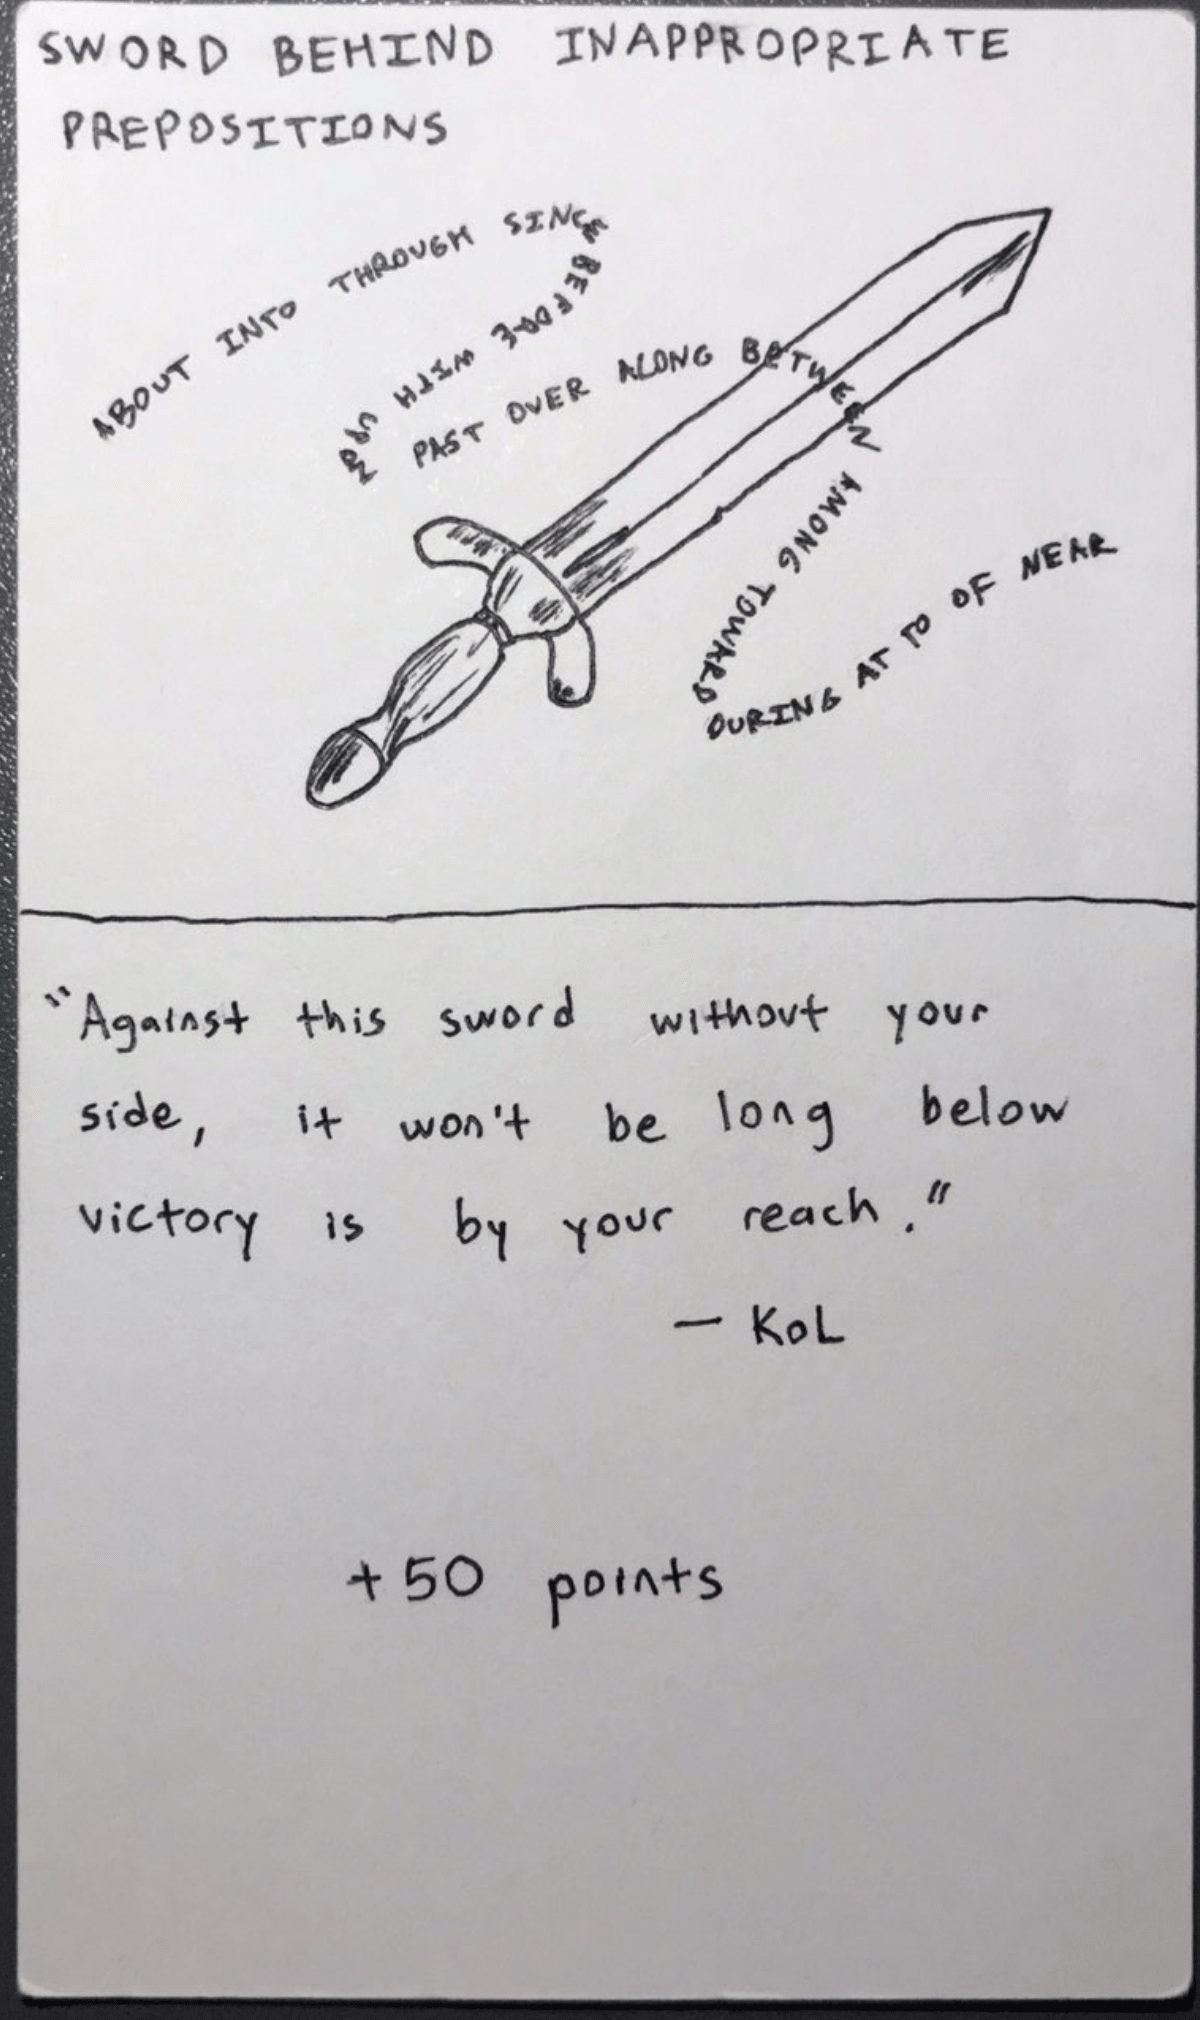 SWORD BEHIND INAPPROPRIATE
PREPOSITIONS
ABOUT INTO THROUGH SINCE
BEFORE WITH UPON
PAST OVER ALONG BETWEEN
AMONG TOWARD
DURING AT TO OF NEAR
"Against this sword without your
side, it won't be long below
victory is by your reach."
- KoL
+50 points